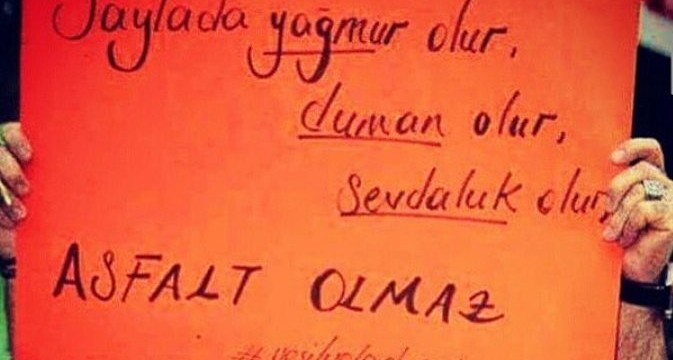 Yaylada yağmur olur,
duman olur,
sevdaluk olur,
ASFALT OLMAZ